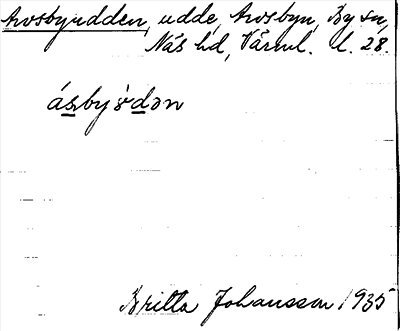 Avosbyudden, udde, Avosbyn, By sn,
Näs hd, Värml. l. 28.
ásbyʹdən
Britta Johansson 1935